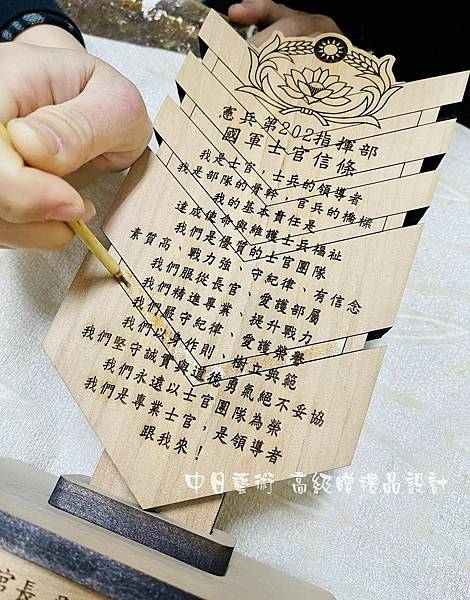 憲兵第202指揮部
國軍士官信條
我是士官，士兵的領導者
我是部隊的骨幹，官兵的橋樑
我的基本責任是
達成使命與維護士兵福祉
我們是優質的士官團隊
素質高、戰力強、守紀律、有信念
我們服從長官、愛護部屬
我們精進專業、提升戰力
我們嚴守紀律、愛護榮譽
我們以身作則、樹立典範
我們堅守誠實與道德勇氣絕不妥協
我們永遠以士官團隊為榮
我們是專業士官，是領導者
跟我來！
中日藝術 高級牌禮品設計
官長